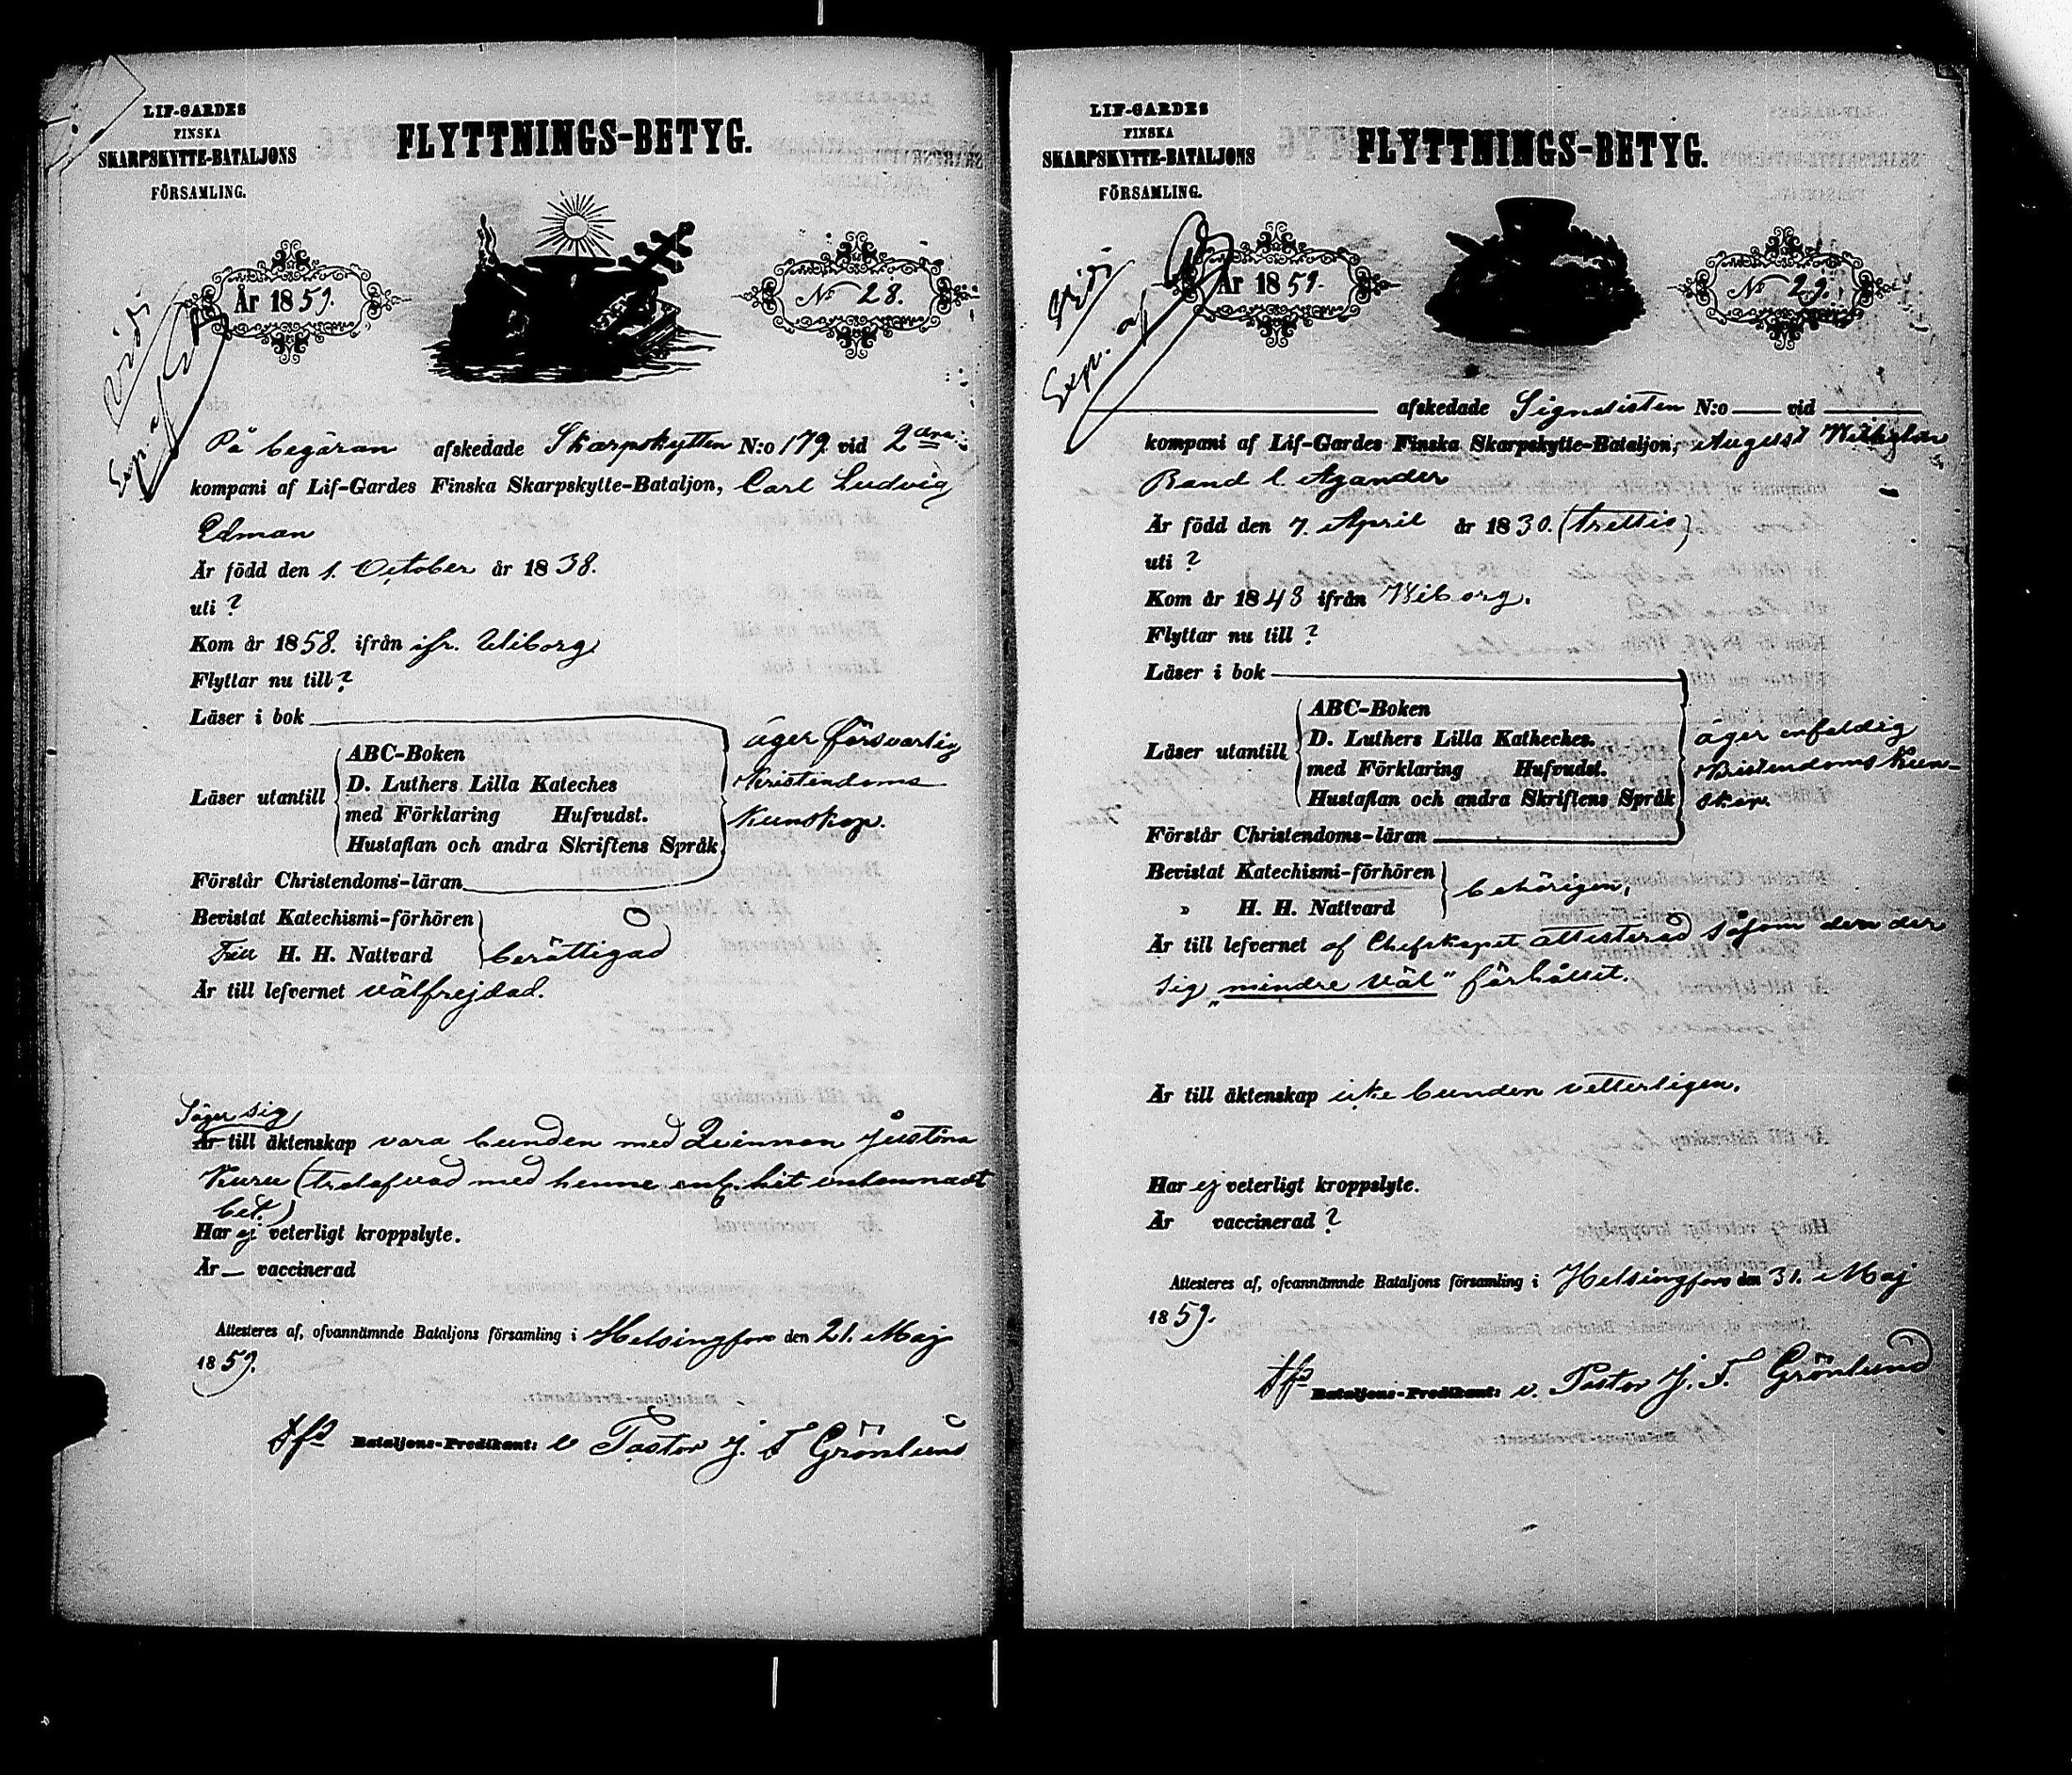 LIF-GARDES
FINSKA
SKARPSKYTTE-BATALJONS
FÖRSAMLING.
FLYTTNINGS-BETYG.
År 1859.
No 28.
Vidi
Exp. af
På begäran afskedade Skarpskytten N:o 179 vid 2dra
kompani af Lif-Gardes Finska Skarpskytte-Bataljon, Carl Ludvig
Edman
Är född den 1. October år 1838.
uti ?
Kom år 1858. ifrån ifr. Wiborg
Flyttar nu till ?
Läser i bok
Läser utantill
ABC-Boken
D. Luthers Lilla Kateches
med Förklaring Hufvudst.
Hustaflan och andra Skriftens Språk
äger försvarlig
Kristendoms
kunskap.
Förstår Christendoms-läran
Bevistat Katechismi-förhören
Till H. H. Nattvard
berättigad
Är till lefvernet välfrejdad.
Säger sig
Är till äktenskap vara bunden med Qvinnan Justina
Kuru (trolofvad med henne enl. hit inlemnadt
bet.)
Har ej veterligt kroppslyte.
Är — vaccinerad
Attesteres af, ofvannämnde Bataljons församling i Helsingfors den 21. Maj
1859.
Bataljons-Predikant: v Pastor J. F Grönlund
LIF-GARDES
FINSKA
SKARPSKYTTE-BATALJONS
FÖRSAMLING.
FLYTTNINGS-BETYG.
År 1859.
No 29.
Vidi
Exp. af
afskedade Signalisten N:o — vid
kompani af Lif-Gardes Finska Skarpskytte-Bataljon, August Wilhelm
Band l. Agander
Är född den 7. April år 1830. (trettio)
uti ?
Kom år 1843 ifrån Wiborg.
Flyttar nu till ?
Läser i bok
Läser utantill
ABC-Boken
D. Luthers Lilla Katheches.
med Förklaring Hufvudst.
Hustaflan och andra Skriftens Språk
äger enfaldig
Kristendoms kun-
skap
Förstår Christendoms-läran
Bevistat Katechismi-förhören
» H. H. Nattvard
behörigen,
Är till lefvernet af Chefskapet attesterad såsom den der
sig „mindre väl" förhållit.
Är till äktenskap icke bunden vetterligen.
Har ej veterligt kroppslyte.
Är vaccinerad ?
Attesteres af, ofvannämnde Bataljons församling i Helsingfors den 31. Maj
1859.
Bataljons-Predikant: v. Pastor J. F. Grönlund